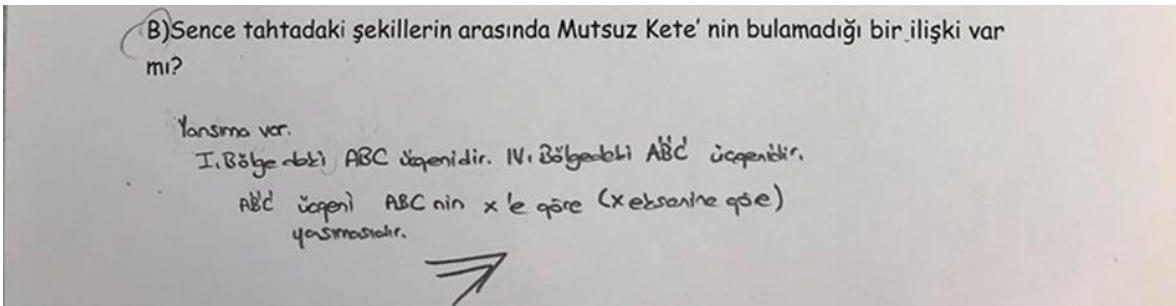 B)Sence tahtadaki şekillerin arasında Mutsuz Kete' nin bulamadığı bir ilişki var
mı?
Yansıma var.
I. Bölgedeki ABC üçgenidir. IV. Bölgedeki A'B'C' üçgenidir.
A'B'C' üçgeni ABC nin x'e göre (x eksenine göre)
yansımasıdır.